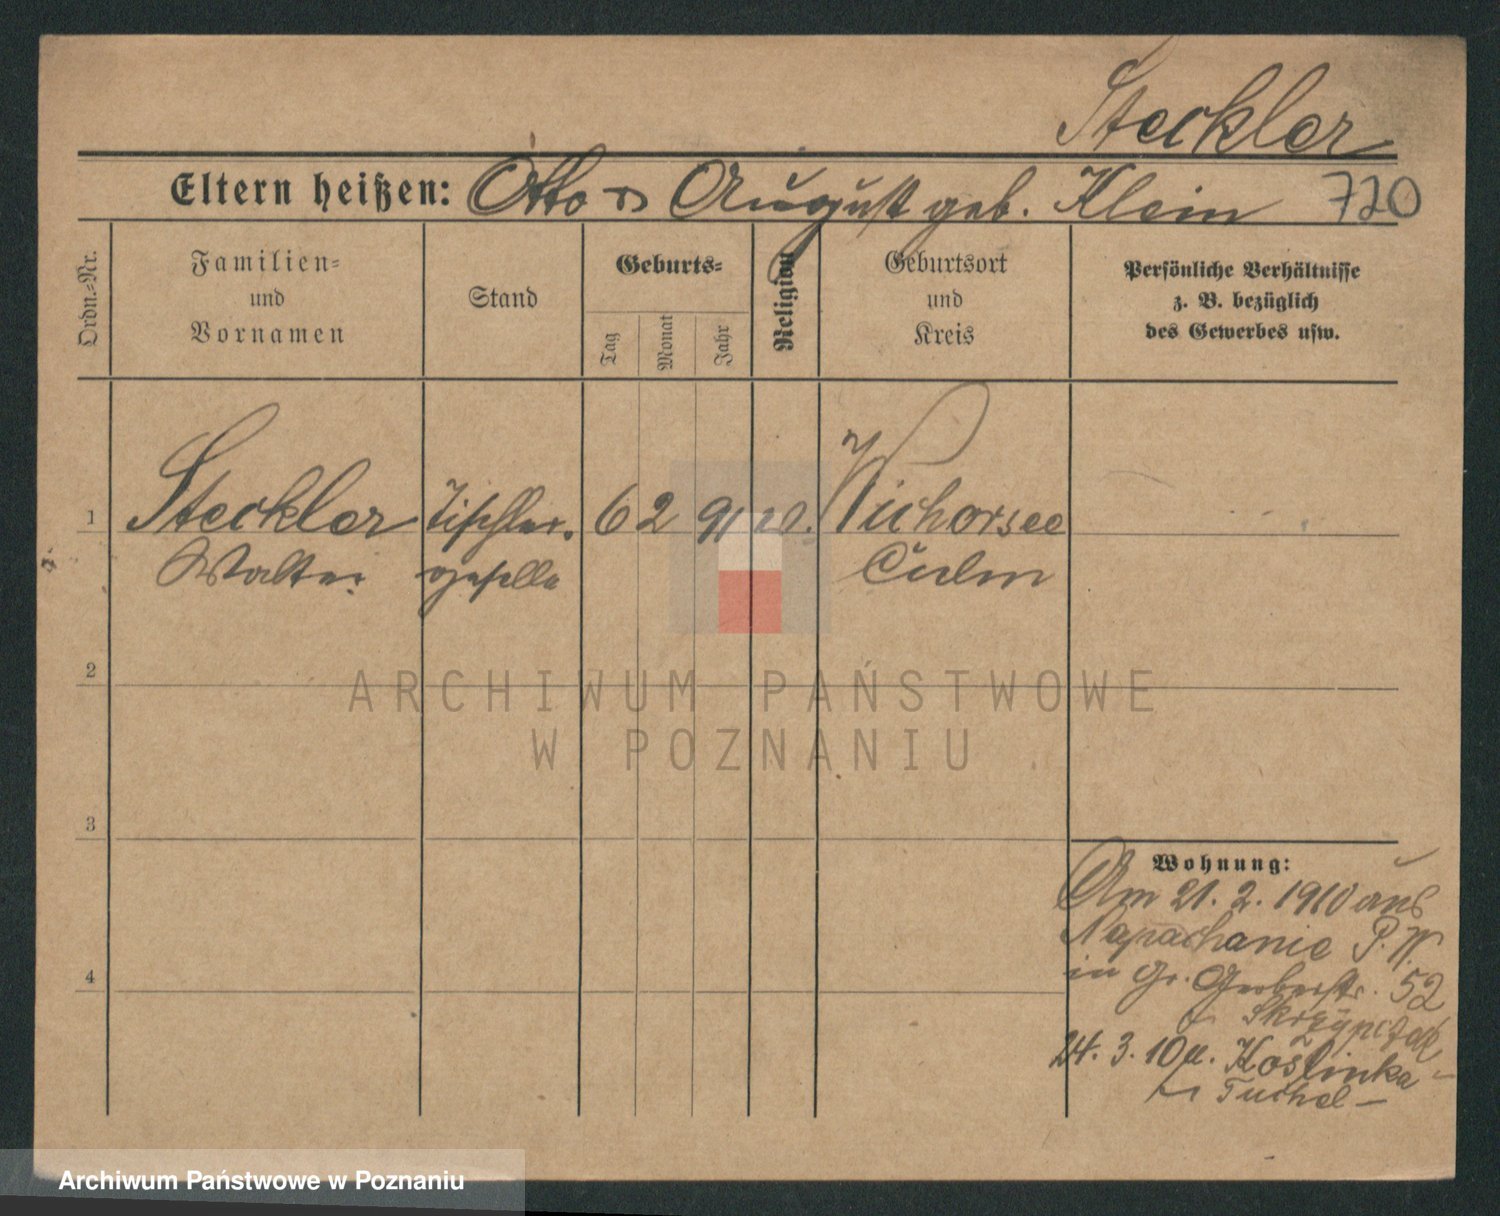 Steckler
Eltern heißen: Otto u August geb. Klein 720
Ordn.-Nr.
Familien-
und
Vornamen
Stand
Geburts-
Tag
Monat
Jahr
Religion
Geburtsort
und
Kreis
Persönliche Verhältnisse
z. B. bezüglich
des Gewerbes usw.
1 Steckler Tischler- 6 2 91 Wichorsee
Walter geselle Culm
2
3
4
Wohnung:
Am 21. 2. 1910 aus
Napachanie P. W.
in Gr. Gerberstr. 52
Skrzypczak
24. 3. 10 n. Koslinka
Tuchel
ARCHIWUM PAŃSTWOWE
W POZNANIU
Archiwum Państwowe w Poznaniu